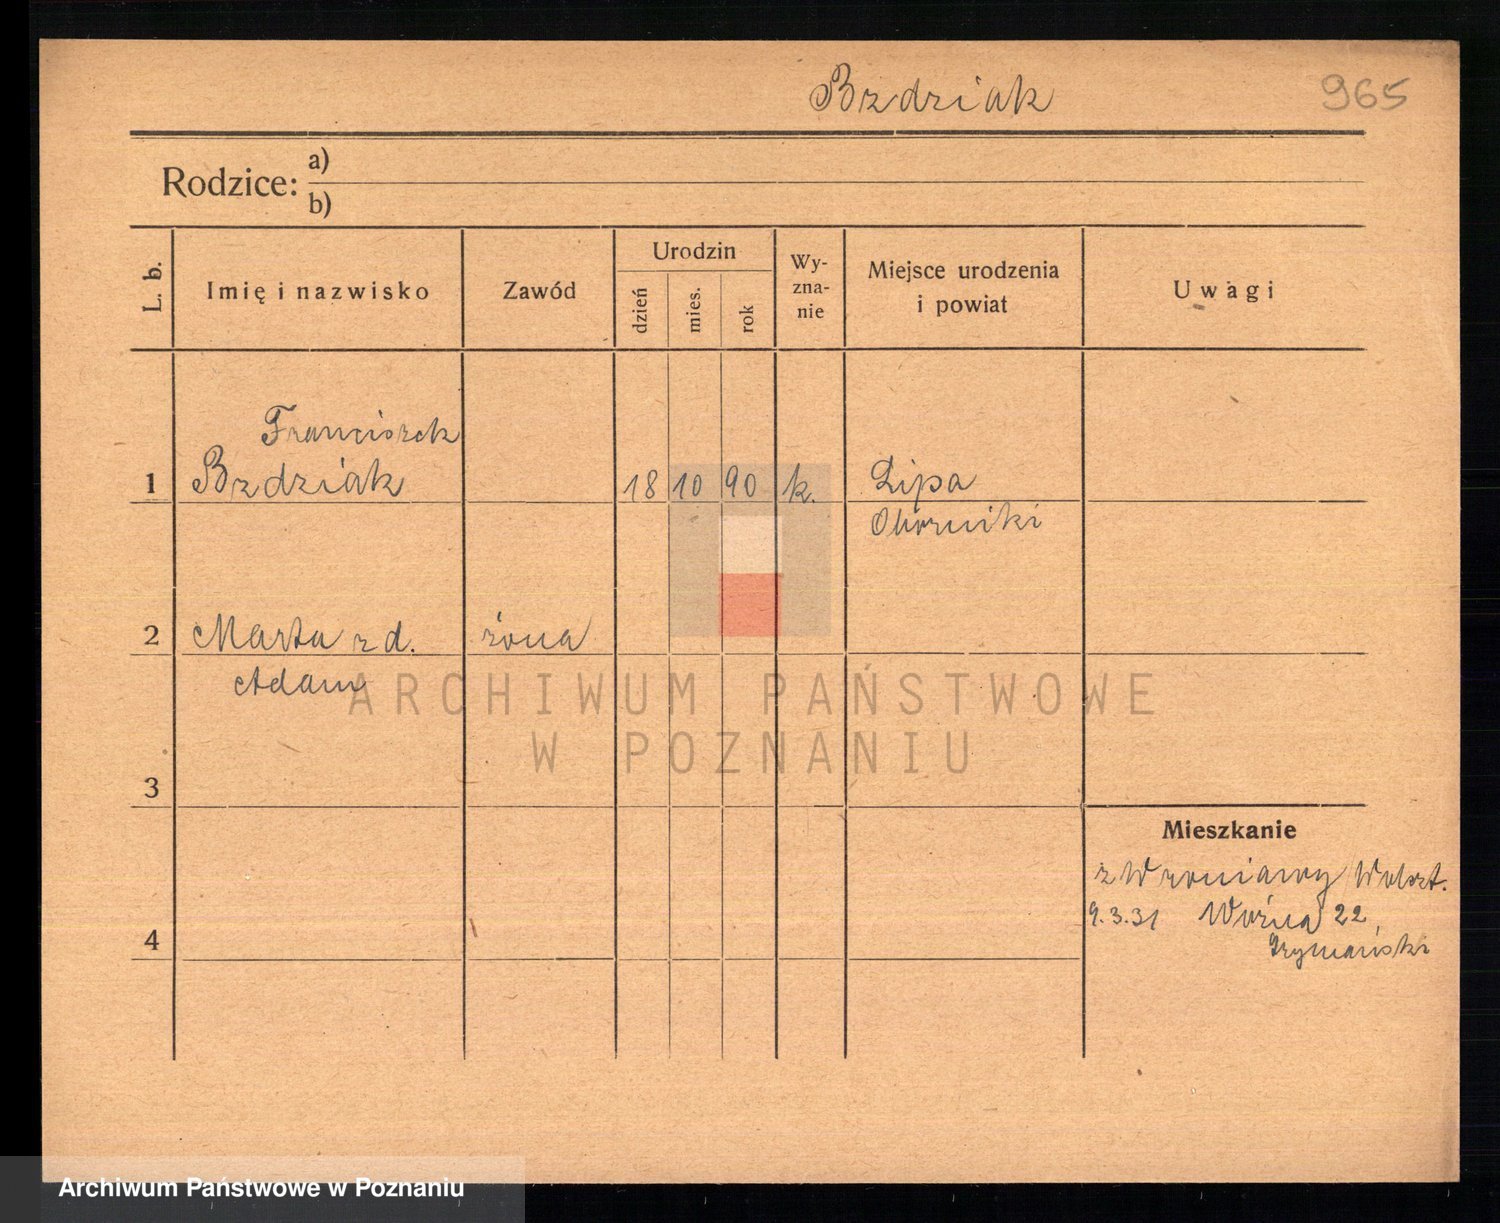 Bzdziak 965
Rodzice: a)
b)
L. b. Imię i nazwisko Zawód Urodzin dzień mies. rok Wy-zna-nie Miejsce urodzenia i powiat Uwagi
Franciszek
1 Bzdziak 18 10 90 k. Lipa
Oborniki
2 Marta z d. żona
Adam
ARCHIWUM PAŃSTWOWE
W POZNANIU
3
Mieszkanie
z Wroniawy Wolszt.
9.3.31 Woźna 22
4
Archiwum Państwowe w Poznaniu